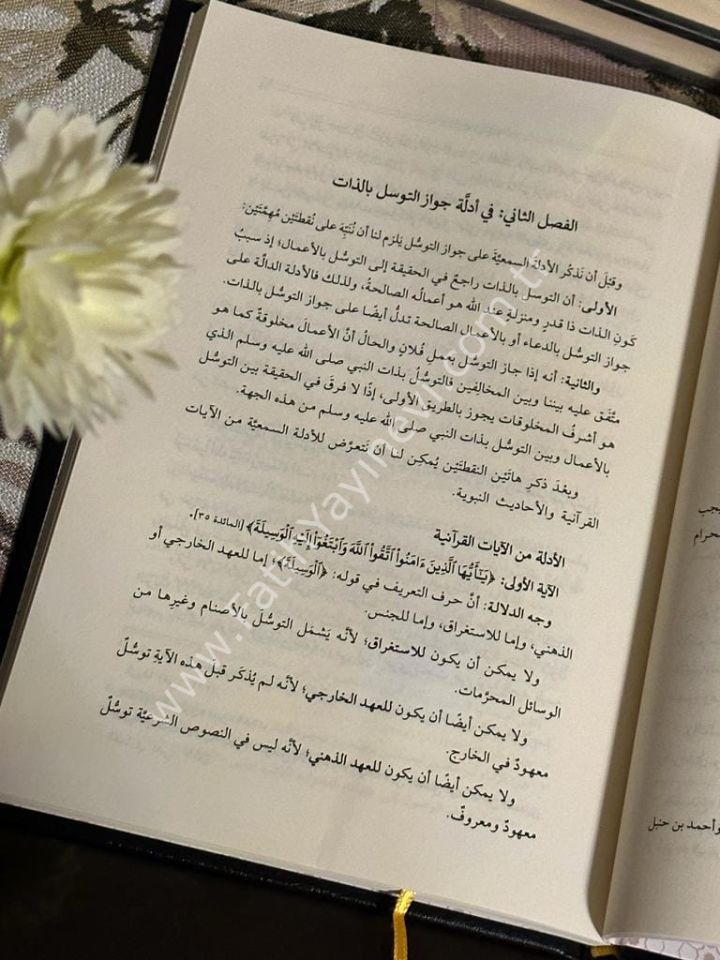 الفصل الثاني: في أدلَّة جواز التوسل بالذات
وقبلَ أن نَذكُر الأدلةَ السمعيَّةَ على جواز التوسُّل يَلزم لنا أن نُنَبِّهَ على نُقطتَيْن مُهِمَّتَيْن:
الأولى: أن التوسل بالذات راجعٌ في الحقيقة إلى التوسُّل بالأعمال؛ إذ سببُ
كَونِ الذات ذا قدرٍ ومنزلةٍ عند الله هو أعمالُه الصالحةُ، ولذلك فالأدلة الدالَّة على
جواز التوسُّل بالدعاء أو بالأعمال الصالحة تدلُّ أيضًا على جواز التوسُّل بالذات.
والثانية: أنه إذا جاز التوسُّل بعملِ فُلانٍ والحالُ أنَّ الأعمالَ مخلوقةٌ كما هو
متَّفَق عليه بيننا وبين المخالِفين فالتوسُّلُ بذات النبي صلى الله عليه وسلم الذي
هو أشرفُ المخلوقات يجوز بالطريق الأولى، إذًا لا فرقَ في الحقيقة بين التوسُّل
بالأعمال وبين التوسُّل بذات النبي صلى الله عليه وسلم من هذه الجهة.
وبعْدَ ذكرِ هاتَيْن النقطتَيْن يُمكِن لنا أن نَتعرَّض للأدلة السمعيَّة من الآيات
القرآنية والأحاديث النبوية.
الأدلة من الآيات القرآنية
الآية الأولى: ﴿يَٰٓأَيُّهَا ٱلَّذِينَ ءَامَنُوا۟ ٱتَّقُوا۟ ٱللَّهَ وَٱبْتَغُوٓا۟ إِلَيْهِ ٱلْوَسِيلَةَ﴾ [المائدة ٣٥].
وجه الدلالة: أنَّ حرف التعريف في قوله: ﴿ٱلْوَسِيلَةَ﴾؛ إما للعهد الخارجي أو
الذهني، وإما للاستغراق، وإما للجنس.
ولا يمكن أن يكون للاستغراق؛ لأنَّه يَشمَل التوسُّلَ بالأصنام وغيرِها من
الوسائل المحرَّمات.
ولا يمكن أيضًا أن يكون للعهد الخارجي؛ لأنَّه لم يُذكَر قبلَ هذه الآيةِ توسُّلٌ
معهودٌ في الخارج.
ولا يمكن أيضًا أن يكون للعهد الذهني؛ لأنَّه ليس في النصوص الشرعيَّة توسُّلٌ
معهودٌ ومعروفٌ.
يجب
محرام
وأحمد بن حنبل
www.FatihYayinevi.com.tr